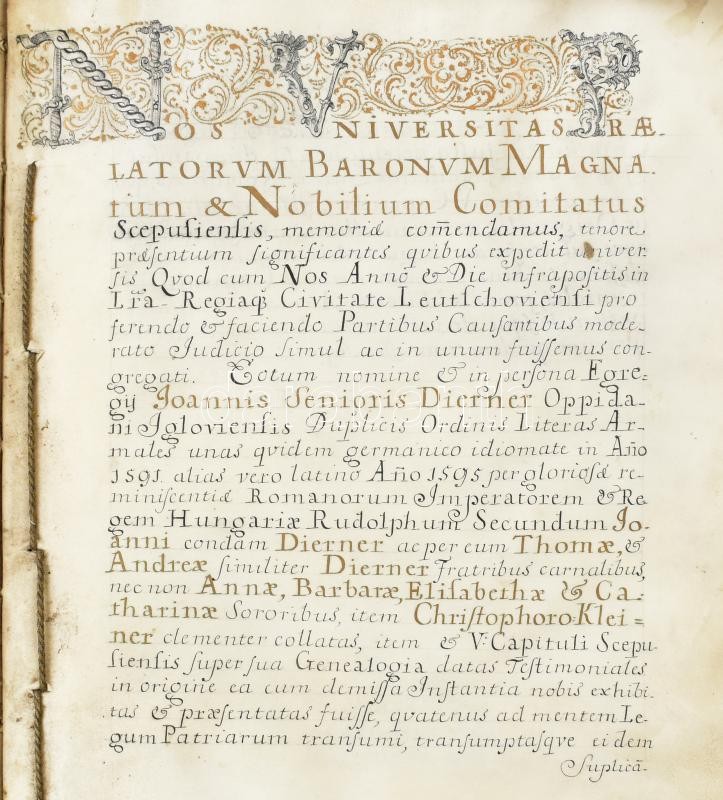 NOS VNIVERSITAS PRÆ-
LATORVM BARONVM MAGNA-
tum & Nobilium Comitatus
Scepusiensis, memoriæ com̃endamus, tenore
præsentium significantes qvibus expedit univer
sis Qvod cum Nos Anno & Die infrapositis in
Lr̃a- Regiaq̃ Civitate Leutschoviensi pro
ferendo & faciendo Partibus Causantibus mode-
rato Judicio simul ac in unum fuissemus con-
gregati. Totum nomine & in persona Egre-
gij Joannis Senioris Dierner Oppida-
ni Igloviensis Duplicis Ordinis Literas Ar-
males unas qvidem germanico idiomate in Año
1591. alias vero latino Año 1595 per gloriosæ re-
miniscentiæ Romanorum Imperatorem & Re
gem Hungariæ Rudolphum Secundum Jo-
anni condam Dierner ac per eum Thomæ, &
Andreæ similiter Dierner Fratribus carnalibus,
nec non Annæ, Barbaræ, Elisabethæ & Ca-
tharinæ Sororibus, item Christophoro Klei=
ner clementer collatas, item & V: Capituli Scepu-
siensis super sua Genealogia datas Testimoniales
in origine ea cum demissa Instantia nobis exhibi-
tas & præsentatas fuisse, qvatenus ad mentem Le-
gum Patriarum transumi, transumptasqve eidem
Suplicã-